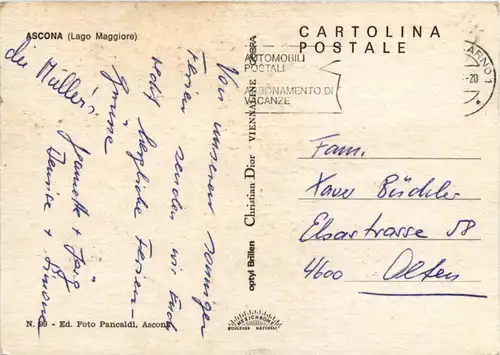 ASCONA (Lago Maggiore)
CARTOLINA
POSTALE
AUTOMOBILI
POSTALI
ABBONAMENTO DI
VACANZE
ARNO
-20
Von unseren sonnigen
Ferien senden wir Euch
recht herzliche Ferien-
Grüsse
die Müller's
Jeanette + Jörg
Denise + Simone
optyl Brillen Christian Dior VIENNALINE COBRA
Fam.
Xaver Büchler
Elsastrasse 58
4600 Olten
N. 99 - Ed. Foto Pancaldi, Ascona
MEXICHROME
COULEURS NATURELLES